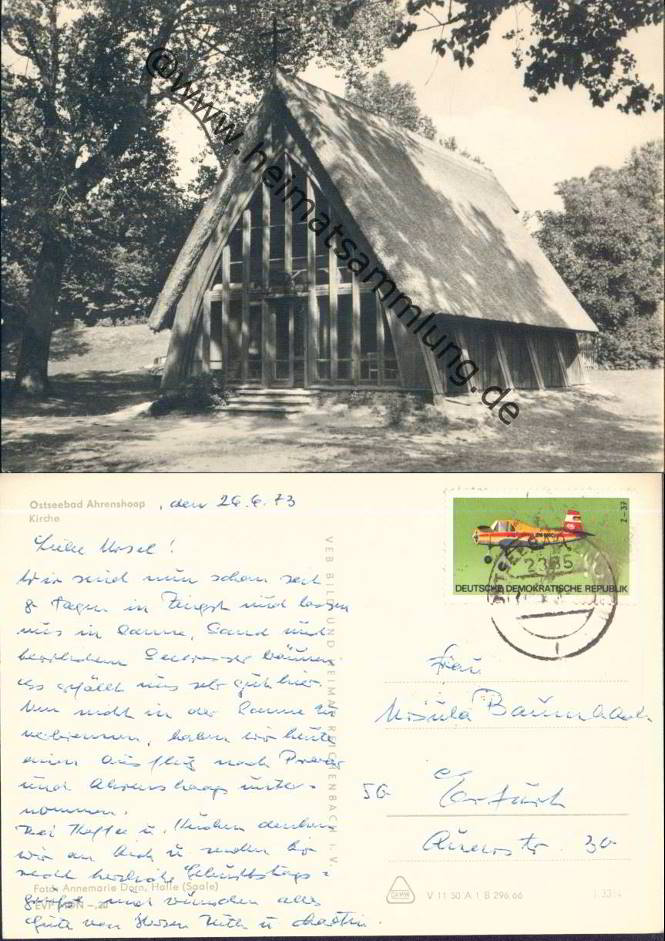 ©www.heimatsammlung.de
Ostseebad Ahrenshoop, den 26.6.73
Kirche
Liebe Ursel!
Wir sind nun schon seit
8 Tagen in Zingst und lassen
uns in Sonne, Sand und
herrlichem Seewasser bräunen
es gefällt uns sehr gut hier.
Um nicht in der Sonne zu
verbrennen, haben wir heute
einen Ausflug nach Prerow
und Ahrenshoop unter-
nommen.
Bei Kaffee u. Kuchen denken
wir an Dich u. senden Dir
recht herzliche Geburtstags-
grüße und wünschen alles
Gute von Ruth u. Martin.
Foto: Annemarie Dorn, Halle (Saale)
EVP MDN -,20
VEB BILD UND HEIMAT REICHENBACH I. V.
Z-37
2385
DEUTSCHE DEMOKRATISCHE REPUBLIK
Frau
Ursula Baumbach
50 Erfurt
Auenstr. 30
V 11 50 A 1 B 296/66